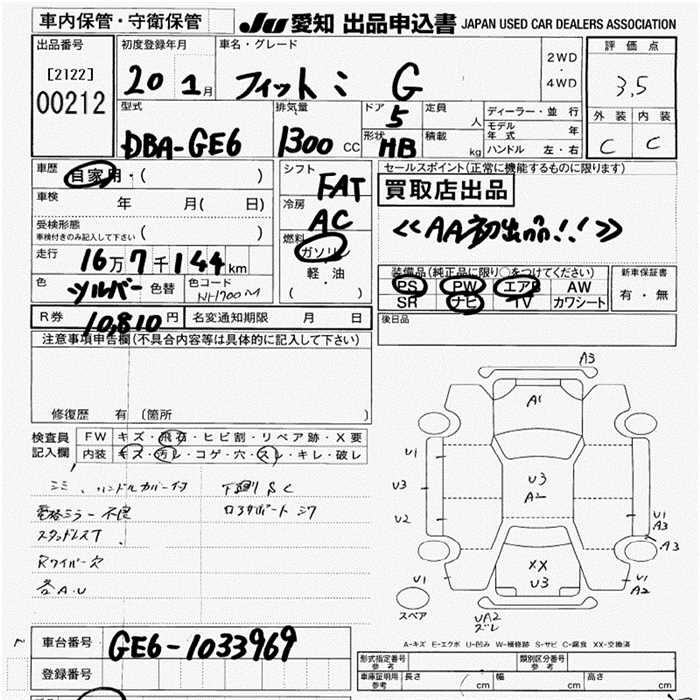 車内保管・守衛保管
JU 愛知 出品申込書 JAPAN USED CAR DEALERS ASSOCIATION
出品番号
[2122]
00212
初度登録年月
20 1月
車名・グレード
フィット G
2WD
・
4WD
評価点
3,5
外装 内装
C C
型式
DBA-GE6
排気量
1300 CC
ドア
5
形状
HB
定員
人
積載
kg
ディーラー・並行
モデル年式 年
ハンドル 左・右
車歴
自家用・( )
車検
年 月( 日)
受検形態
車検付きのみ記入して下さい ( )
走行
16万7千144km
色
シルバー
色替
色コード
NH700M
シフト
FAT
冷房
AC
燃料
ガソリン
軽・油
( )
セールスポイント(正常に機能するものに限ります)
買取店出品
<<AA初出品!!>>
装備品(純正品に限り○をつけてください)
PS PW エアB AW
SR ナビ TV カワシート
新車保証書
有・無
R券
10,810円
名変通知期限 月 日
後日品
注意事項申告欄(不具合内容等は具体的に記入して下さい)
修復歴 有 (箇所
検査員記入欄
FW キズ・飛石・ヒビ割・リペア跡・X要
内装 キズ・汚レ・コゲ・穴・スレ・キレ・破レ
ハンドルカバー付
下廻りSC
電格ミラー不良
スタッドレスT
Rワイパー欠
各A.U
A3
A1
U1
U3
U2
U3
A2
U1
A3
A3
XX
U3
U1
U1
A2
UA2
ズレ
スペア
A-キズ E-エクボ U-凹み W-補修跡 S-サビ C-腐食 XX-交換済
車台番号
GE6-1033969
登録番号
形式指定番号
参考
類別区分番号
参考
車庫証明用
参考
長さ
cm
幅
cm
高さ
cm